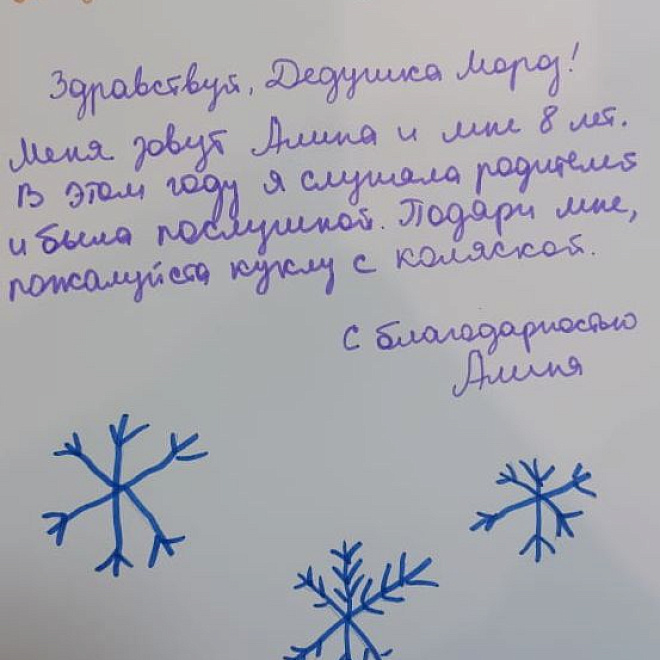 Здравствуй, Дедушка Мороз!
Меня зовут Алина и мне 8 лет.
В этом году я слушала родителей
и была послушной. Подари мне,
пожалуйста куклу с коляской.
С благодарностью
Алина